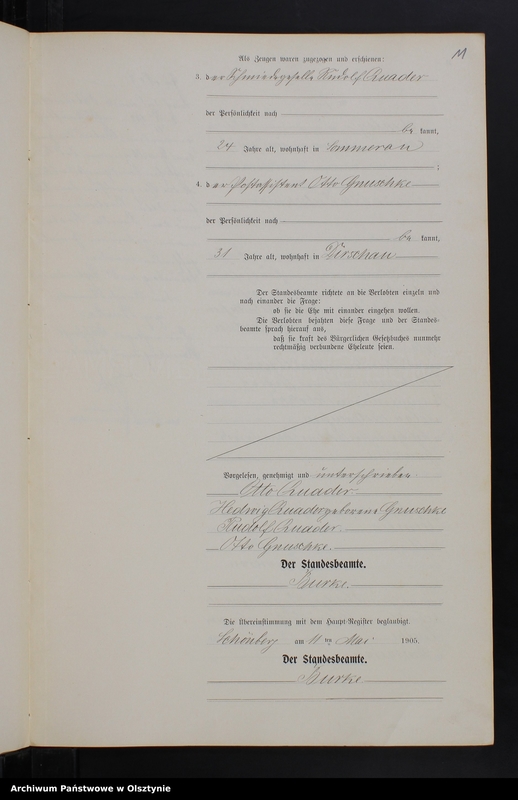 11
Als Zeugen waren zugezogen und erschienen:
3. der Schmiedegeselle Rudolf Quader
der Persönlichkeit nach
be kannt,
24 Jahre alt, wohnhaft in Sommerau
;
4. der Postassistent Otto Gnuschke
der Persönlichkeit nach
be kannt,
31 Jahre alt, wohnhaft in Dirschau
Der Standesbeamte richtete an die Verlobten einzeln und
nach einander die Frage:
ob sie die Ehe mit einander eingehen wollen.
Die Verlobten bejahten diese Frage und der Standes-
beamte sprach hierauf aus,
daß sie kraft des Bürgerlichen Gesetzbuches nunmehr
rechtmäßig verbundene Eheleute seien.
Vorgelesen, genehmigt und unterschrieben:
Otto Quader.
Hedwig Quader geborene Gnuschke
Rudolf Quader.
Otto Gnuschke.
Der Standesbeamte.
Burke.
Die Übereinstimmung mit dem Haupt-Register beglaubigt.
Schönberg am 11 ten Mai 1905.
Der Standesbeamte.
Burke
Archiwum Państwowe w Olsztynie